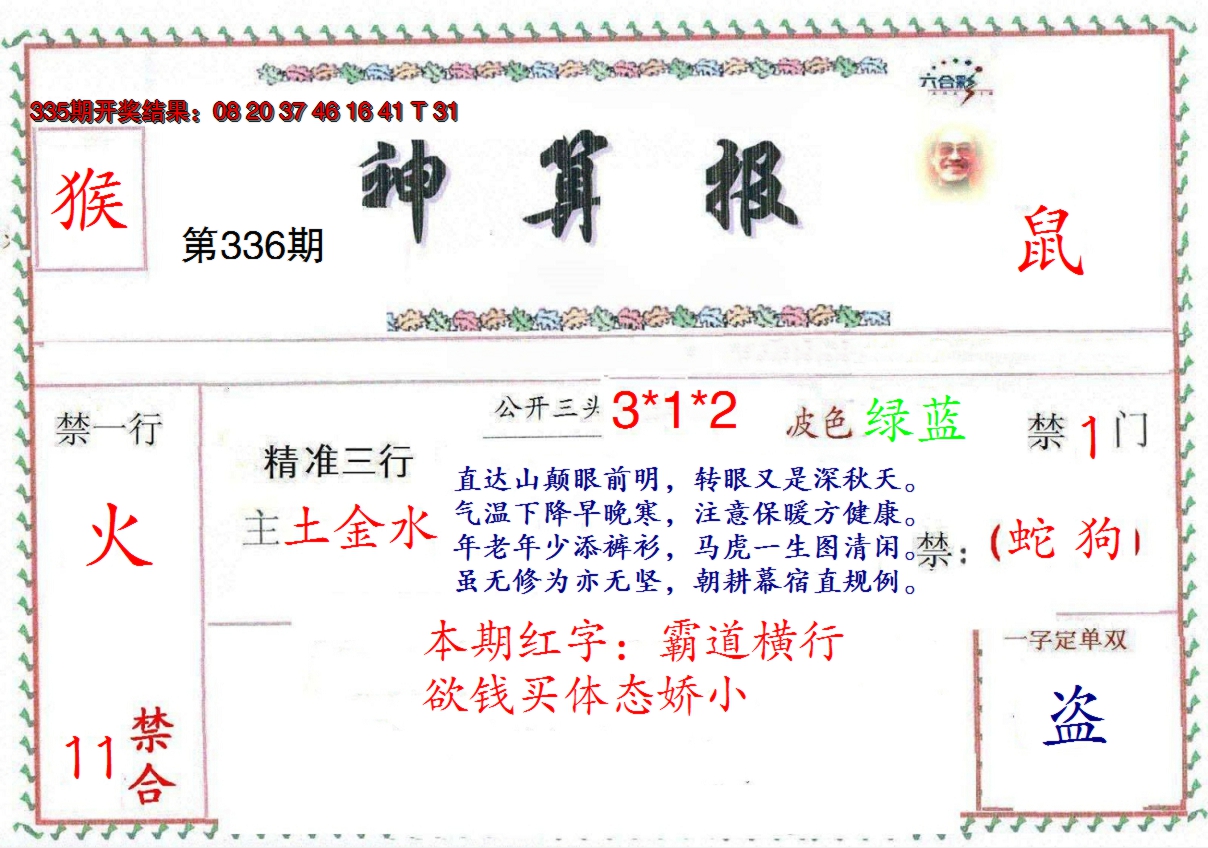 六合彩
335期开奖结果：08 20 37 46 16 41 T 31
神算报
猴
第336期
鼠
禁一行
火
11 禁合
精准三行
主土金水
公开三头 3*1*2
波色 绿蓝
禁1门
直达山颠眼前明，转眼又是深秋天。
气温下降早晚寒，注意保暖方健康。
年老年少添裤衫，马虎一生图清闲。
虽无修为亦无坚，朝耕幕宿直规例。
禁：（蛇 狗）
本期红字：霸道横行
欲钱买体态娇小
一字定单双
盗